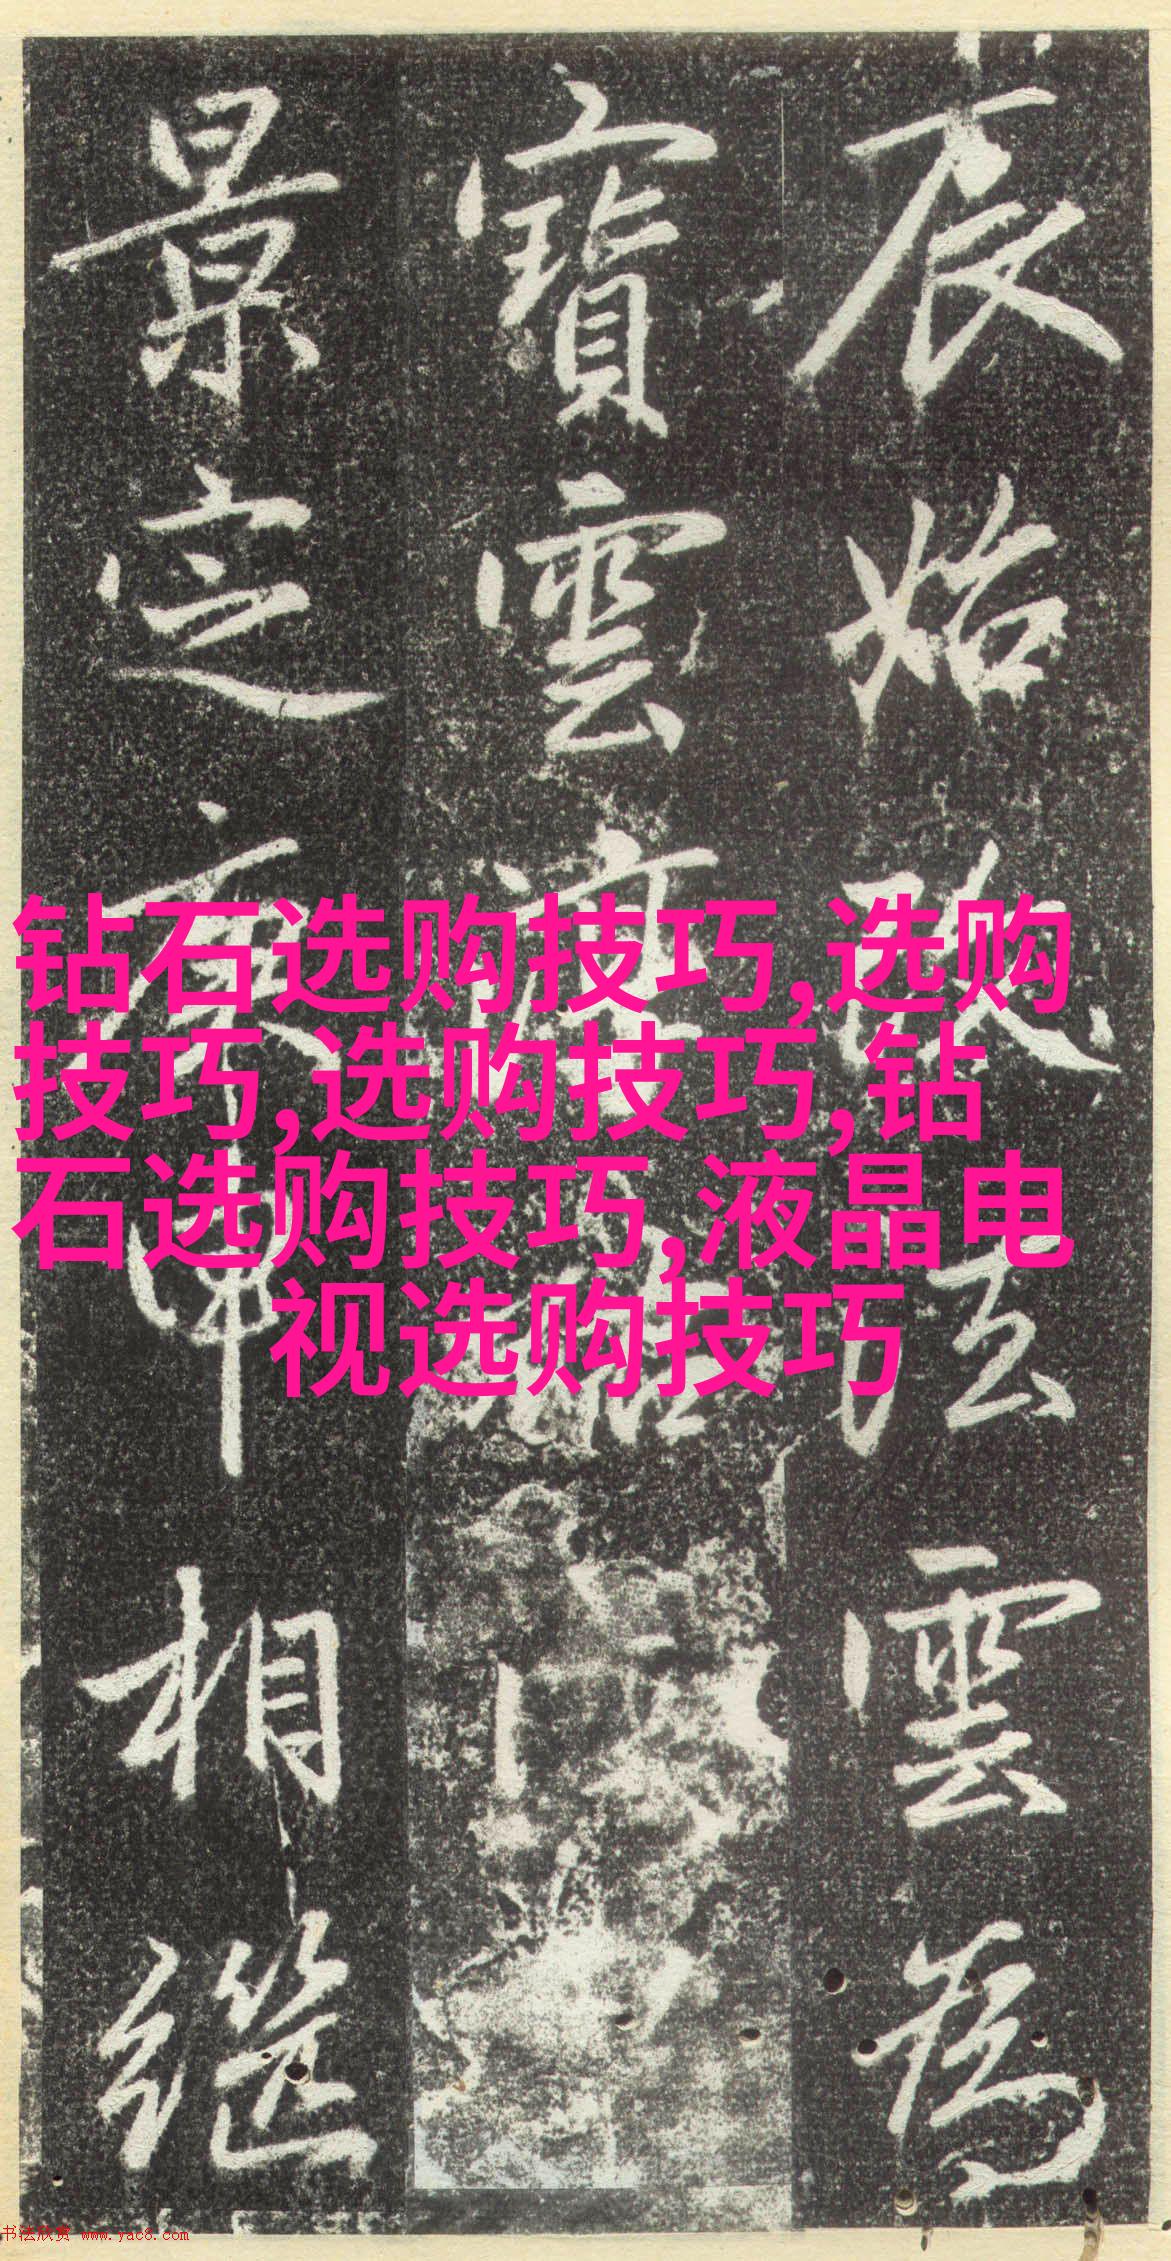 辰始改法雲為
寶雲
景定庚申相繼
钻石选购技巧,选购
技巧,选购技巧,钻
石选购技巧,液晶电
视选购技巧
书法欣赏 www.yac8.com